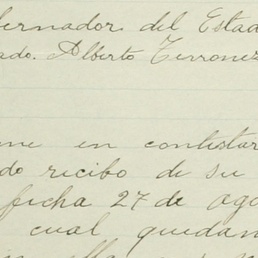 bernador del Estad
ado. Alberto Terrones
ne en contestar
do recibo de su
fecha 27 de ago
cual quedan